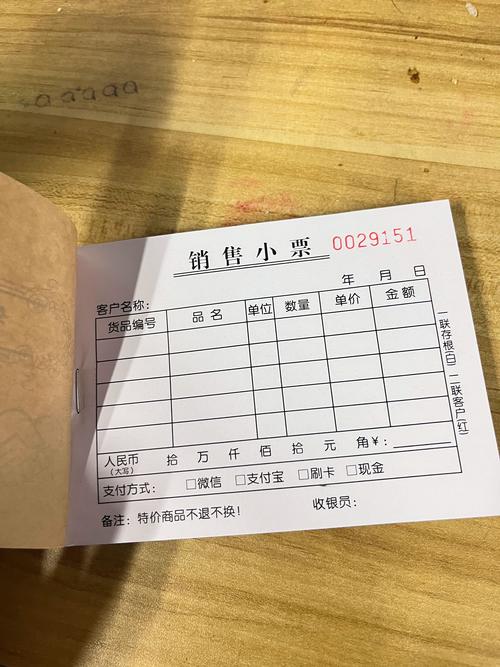 aaaaa
销售小票 0029151
年 月 日
客户名称：
货品编号 品名 单位 数量 单价 金额
人民币 拾 万 仟 佰 拾 元 角￥：
（大写）
支付方式： □微信 □支付宝 □刷卡 □现金
备注：特价商品不退不换！ 收银员：
一联存根(白) 二联客户(红)